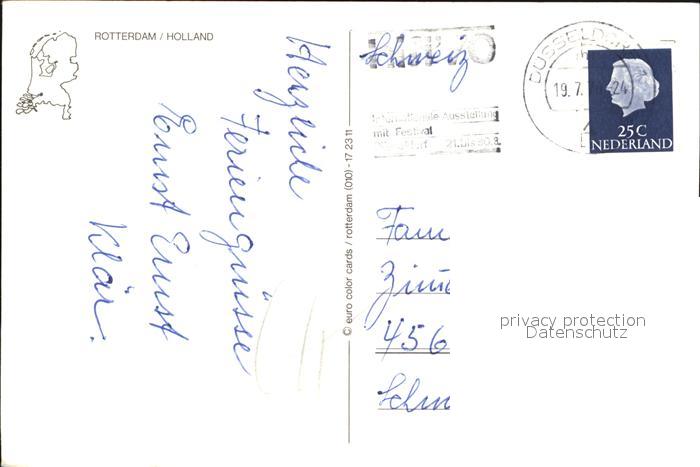 ROTTERDAM / HOLLAND
Herzliche
Feriengrüsse
Ernst Ernst
Klär.
© euro color cards / rotterdam (010) - 17 23 11
Schweiz
Internationale Ausstellung
mit Festival
21. bis 30.8.
DÜSSELDORF
19.7.
24
25 C
NEDERLAND
Fam
456
Schm
privacy protection
Datenschutz